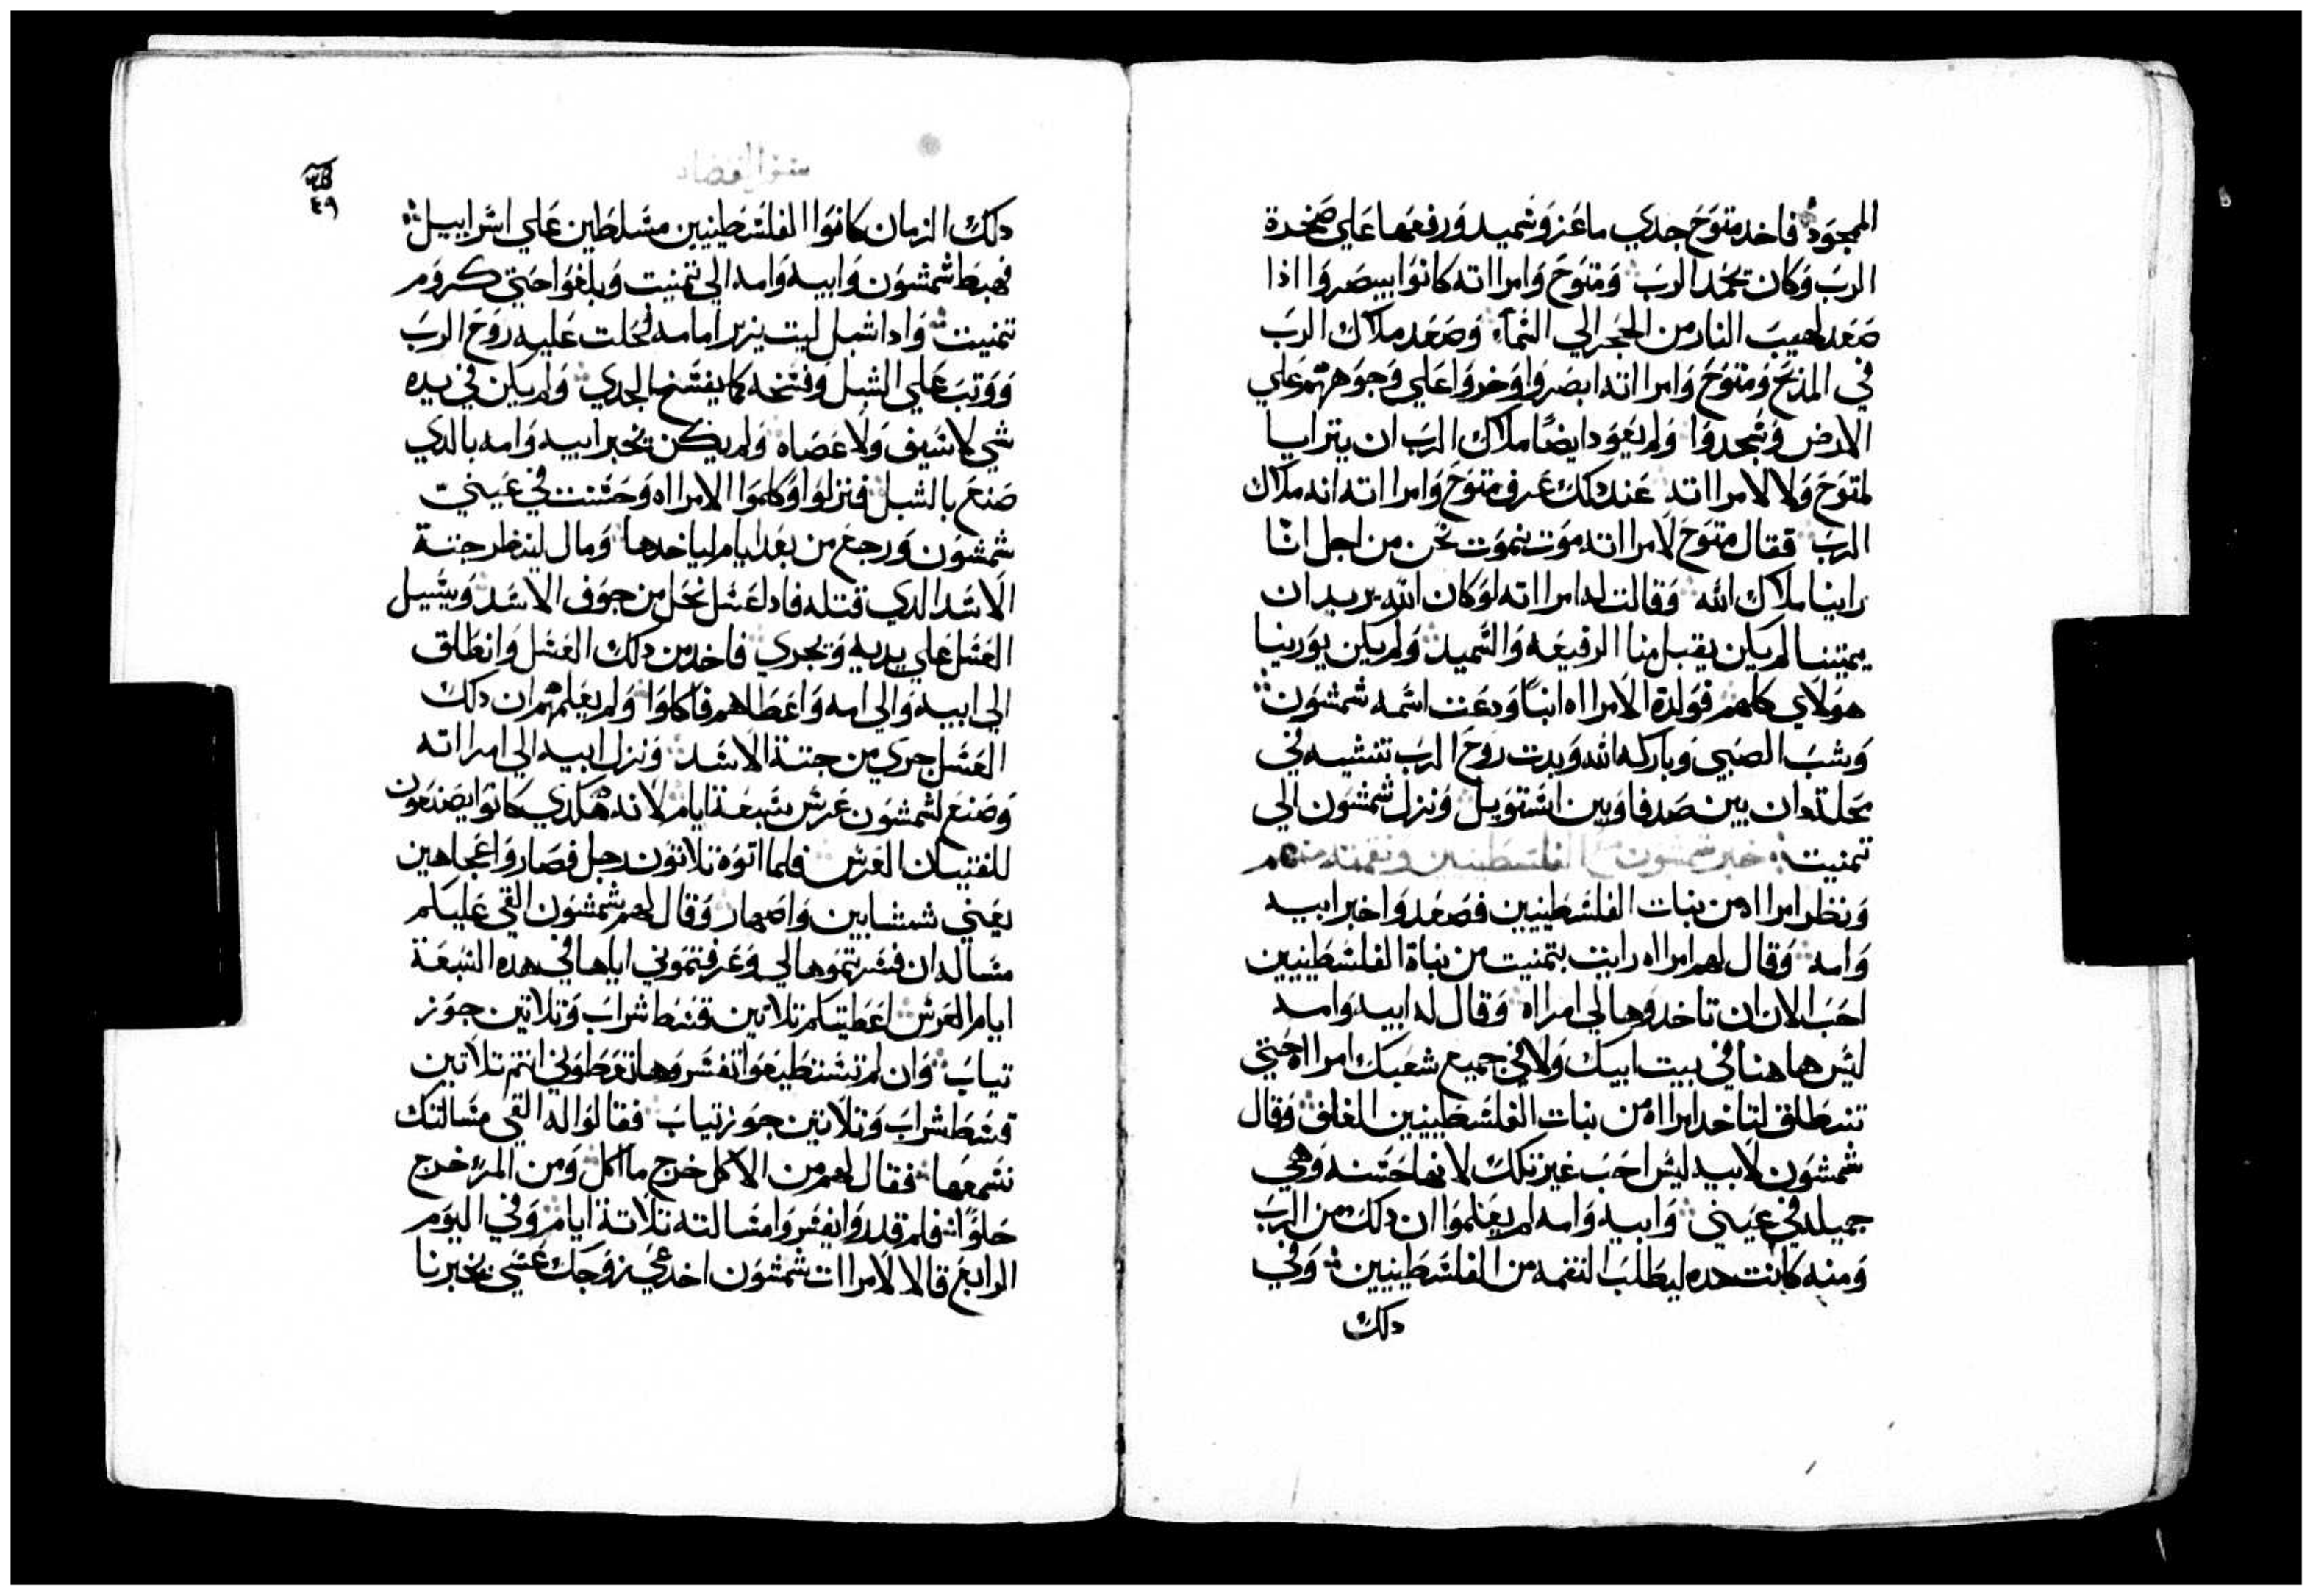 الممجود فاخد متوح جدي ماعز وسميد ورفعها علي صخدة
الرب وكان تحمد الرب ومتوح وامرااته كانوا يبصروا اذا
صعد لهيب النار من الحجر الي السماء وصعد ملاك الرب
في المذبح ومتوح وامرااته ابصروا وخروا علي وجوههم علي
الارض وسجدوا ولم يعود ايضا ملاك الرب ان يترايا
لمتوح ولا لامرااته عند دلك عرف متوح وامرااته انه ملاك
الرب فقال متوح لامرااته موت نموت نحن من اجل انا
راينا ملاك الله وقالت له امرااته لو كان الله يريد ان
يميتنا لم يكن يقبل منا الرفيعه والسميد ولم يكن يورينا
هولاي كلهم فولدة الامرااه ابنا ودعت اسمه شمشون
وشب الصبي وباركه الله وبدت روح الرب تنشيه في
محلة دان بين صدفا وبين استويل ونزل شمشون الي
تمنيت خبر شمشون مع الفلسطينين ونقمته منهم
ونظر امرااه من بنات الفلسطينيين فصعد واخبر ابيه
وامه وقال لهم امرااه رايت بتمنيت من بناة الفلسطينيين
احب الان ان تاخدوها لي امرااه وقال له ابيه وامه
ليس هاهنا في بيت ابيك ولا في جميع شعبك امرااه حتي
تنطلق لتاخد امرااه من بنات الفلسطينيين الغلف وقال
شمشون لابيه ليس احب غير تلك لانها حسنه وهي
جميله في عيني وابيه وامه لم يعلموا ان دلك من الرب
ومنه كانت هده ليطلب النقمه من الفلسطينيين وفي
دلك
سفر القضاه
٤٩
دلك الزمان كانوا الفلسطينيين مسلطين علي اسراييل
فهبط شمشون وابيه وامه الي تمنيت وبلغوا حتي كروم
تمنيت وادا شبل ليت يزير امامه فحلت عليه روح الرب
ووتب علي الشبل وفسخه كما يفسخ الجدي ولم يكن في يده
شي لا سيف ولا عصاه ولم يكن تخبر ابيه وامه بالدي
صنع بالشبل فنزلوا وكلموا الامرااه وحسنت في عيني
شمشون ورجع من بعد ايام لياخدها ومال لينظر جتة
الاسد الدي قتله فادا عسل نحل من جوف الاسد ويسيل
العسل علي يديه ويجري فاخد من دلك العسل وانطلق
الي ابيه والي امه واعطاهم فاكلوا ولم يعلمهم ان دلك
العسل جري من جتة الاسد ونزل ابيه الي امرااته
وصنع لشمشون عرس سبعة ايام لانه هكدي كانوا يصنعون
للفتيان العرس فلما اتوه تلاتون رجل فصاروا عجاهين
يعني شبشابين واصهار وقال لهم شمشون القي عليكم
مساله ان فسرتموها لي وعرفتموني اياها في هده السبعة
ايام العرس اعطيتكم تلاتين قسط شراب وتلاتين جوز
تياب وان لم تستطيعوا تفسروها تعطوني انتم تلاتين
قسط شراب وتلاتين جوز تياب فقالوا له القي مسالتك
نسمعها فقال لهم من الاكل خرج ماكل ومن المر خرج
حلوا فلم قدروا يفسروا مسالته تلاتة ايام وفي اليوم
الرابع قالا لامراات شمشون اخدعي زوجك عسي يخبرنا